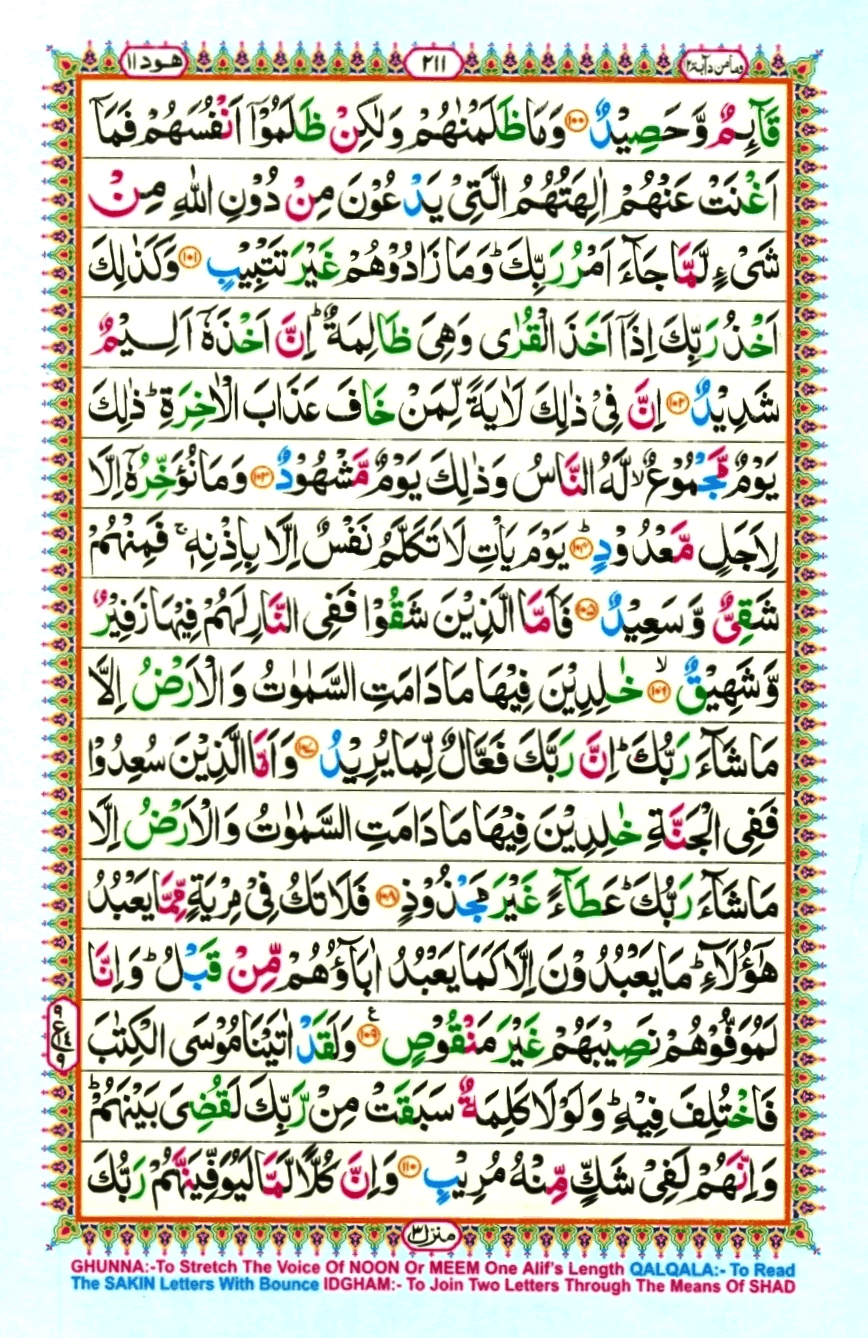 وما من دآبة ١٢
٢١١
هود ١١
قَآئِمٌ وَّحَصِيْدٌ ﴿۱۰۰﴾ وَمَا ظَلَمْنٰهُمْ وَلٰكِنْ ظَلَمُوْۤا اَنْفُسَهُمْ فَمَاۤ
اَغْنَتْ عَنْهُمْ اٰلِهَتُهُمُ الَّتِىْ يَدْعُوْنَ مِنْ دُوْنِ اللّٰهِ مِنْ
شَىْءٍ لَّمَّا جَآءَ اَمْرُ رَبِّكَ ؕ وَمَا زَادُوْهُمْ غَيْرَ تَتْبِيْبٍ ﴿۱۰۱﴾ وَكَذٰلِكَ
اَخْذُ رَبِّكَ اِذَاۤ اَخَذَ الْقُرٰى وَهِىَ ظَالِمَةٌ ؕ اِنَّ اَخْذَهٗۤ اَلِيْمٌ
شَدِيْدٌ ﴿۱۰۲﴾ اِنَّ فِىْ ذٰلِكَ لَاٰيَةً لِّمَنْ خَافَ عَذَابَ الْاٰخِرَةِ ؕ ذٰلِكَ
يَوْمٌ مَّجْمُوْعٌ ۙ لَّهُ النَّاسُ وَذٰلِكَ يَوْمٌ مَّشْهُوْدٌ ﴿۱۰۳﴾ وَمَا نُؤَخِّرُهٗۤ اِلَّا
لِاَجَلٍ مَّعْدُوْدٍ ؕ ﴿۱۰۴﴾ يَوْمَ يَاْتِ لَا تَكَلَّمُ نَفْسٌ اِلَّا بِاِذْنِهٖ ۚ فَمِنْهُمْ
شَقِىٌّ وَّسَعِيْدٌ ﴿۱۰۵﴾ فَاَمَّا الَّذِيْنَ شَقُوْا فَفِى النَّارِ لَهُمْ فِيْهَا زَفِيْرٌ
وَّشَهِيْقٌ ۙ ﴿۱۰۶﴾ خٰلِدِيْنَ فِيْهَا مَا دَامَتِ السَّمٰوٰتُ وَالْاَرْضُ اِلَّا
مَا شَآءَ رَبُّكَ ؕ اِنَّ رَبَّكَ فَعَّالٌ لِّمَا يُرِيْدُ ﴿۱۰۷﴾ وَاَمَّا الَّذِيْنَ سُعِدُوْا
فَفِى الْجَنَّةِ خٰلِدِيْنَ فِيْهَا مَا دَامَتِ السَّمٰوٰتُ وَالْاَرْضُ اِلَّا
مَا شَآءَ رَبُّكَ ؕ عَطَآءً غَيْرَ مَجْذُوْذٍ ﴿۱۰۸﴾ فَلَا تَكُ فِىْ مِرْيَةٍ مِّمَّا يَعْبُدُ
هٰٓؤُلَآءِ ؕ مَا يَعْبُدُوْنَ اِلَّا كَمَا يَعْبُدُ اٰبَآؤُهُمْ مِّنْ قَبْلُ ؕ وَاِنَّا
لَمُوَفُّوْهُمْ نَصِيْبَهُمْ غَيْرَ مَنْقُوْصٍ ﴿۱۰۹﴾ ع وَلَقَدْ اٰتَيْنَا مُوْسَى الْكِتٰبَ
۹ ع ۹
فَاخْتُلِفَ فِيْهِ ؕ وَلَوْلَا كَلِمَةٌ سَبَقَتْ مِنْ رَّبِّكَ لَقُضِىَ بَيْنَهُمْ ؕ
وَاِنَّهُمْ لَفِىْ شَكٍّ مِّنْهُ مُرِيْبٍ ﴿۱۱۰﴾ وَاِنَّ كُلًّا لَّمَّا لَيُوَفِّيَنَّهُمْ رَبُّكَ
منزل ٣
GHUNNA:-To Stretch The Voice Of NOON Or MEEM One Alif's Length QALQALA:- To Read
The SAKIN Letters With Bounce IDGHAM:- To Join Two Letters Through The Means Of SHAD